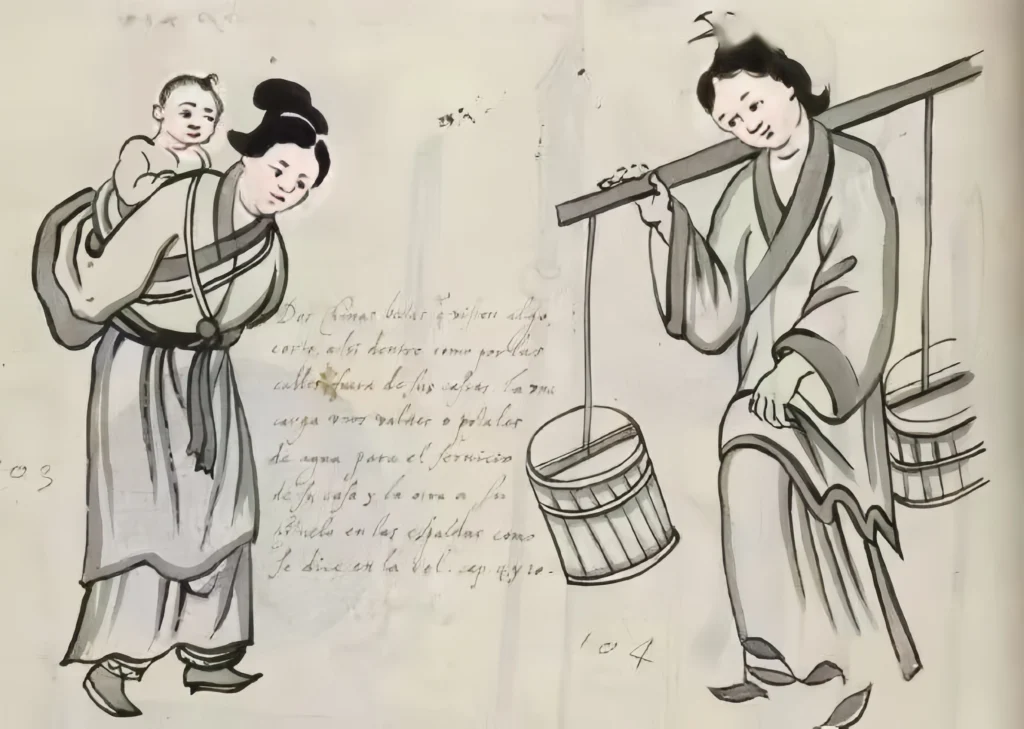 Dos Chinas baxas q̃ visten algo
corto, assi dentro como por las
calles fuera de sus casas. la una
carga unos valdes o potalas
de agua para el servicio
de su casa y la otra a su
en las espaldas como
se dice en la Rel. cap 4. y 10.
103
104